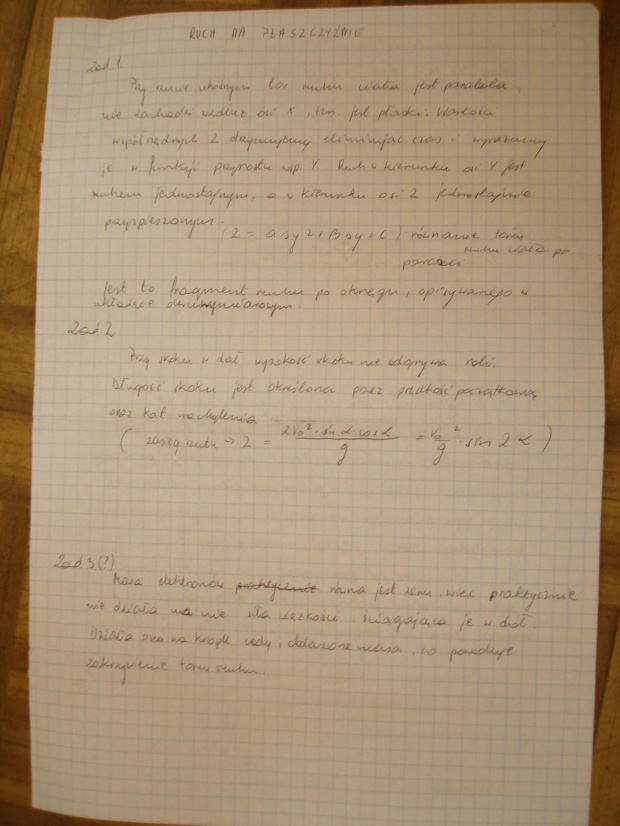 RUCH NA PŁASZCZYŹNIE
Zad.1
Przy rzucie ukośnym tor ruchu ciała jest parabolą,
nie zachodzi wzdłuż osi X, tzn. jest płaski. Wartości
współrzędnych Z otrzymujemy eliminując czas i wyrażamy
je w funkcji przyrostu wsp. Y. Ruch w kierunku osi Y jest
ruchem jednostajnym, a w kierunku osi Z jednostajnie
przyspieszonym.
(Z = asy2 + Bsy + C) - równanie toru
ruchu ciała po
paraboli
Jest to fragment ruchu po okręgu, opisywanego w
układzie dwuwymiarowym.
Zad 2
Przy skoku w dal wysokość skoku nie odgrywa roli.
Długość skoku jest określona przez prędkość początkową
oraz kąt nachylenia
( zasięg rzutu → Z = 2V₀² · sin α · cos α / g = V₀²/g sin 2α )
Zad.3(?)
Masa elektronów praktycznie równa jest zeru, więc praktycznie
nie działa na nie siła ciężkości, ściągająca je w dół.
Działa ona na krople wody, obdarzone masą, co powoduje
zakrzywienie toru ruchu.